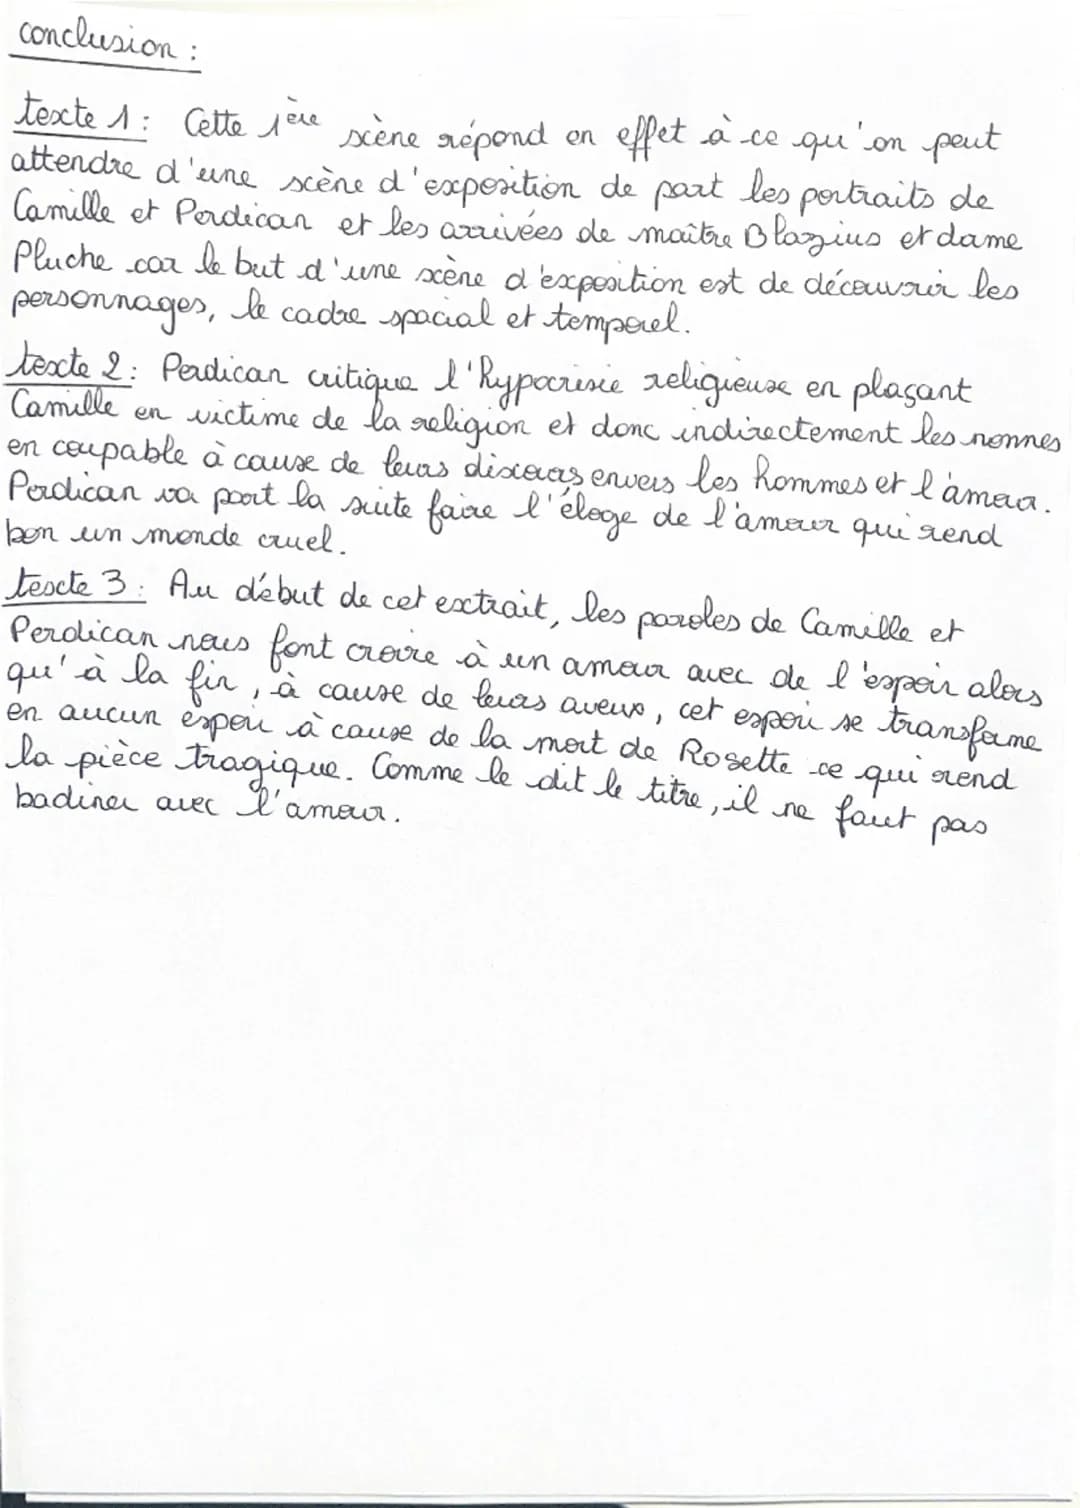 conclusion :
texte 1 : Cette 1ère scène répond en effet à ce qu'on peut
attendre d'une scène d'exposition de part les portraits de
Camille et Perdican et les arrivées de maître Blazius et dame
Pluche car le but d'une scène d'exposition est de découvrir les
personnages, le cadre spacial et temporel.
texte 2 : Perdican critique l'hypocrisie religieuse en plaçant
Camille en victime de la religion et donc indirectement les nonnes
en coupable à cause de leurs discours envers les hommes et l'amour.
Perdican va part la suite faire l'éloge de l'amour qui rend
bon un monde cruel.
texte 3 : Au début de cet extrait, les paroles de Camille et
Perdican nous font croire à un amour avec de l'espoir alors
qu'à la fin, à cause de leurs aveux, cet espoir se transforme
en aucun espoir à cause de la mort de Rosette ce qui rend
la pièce tragique. Comme le dit le titre, il ne faut pas
badiner avec l'amour.